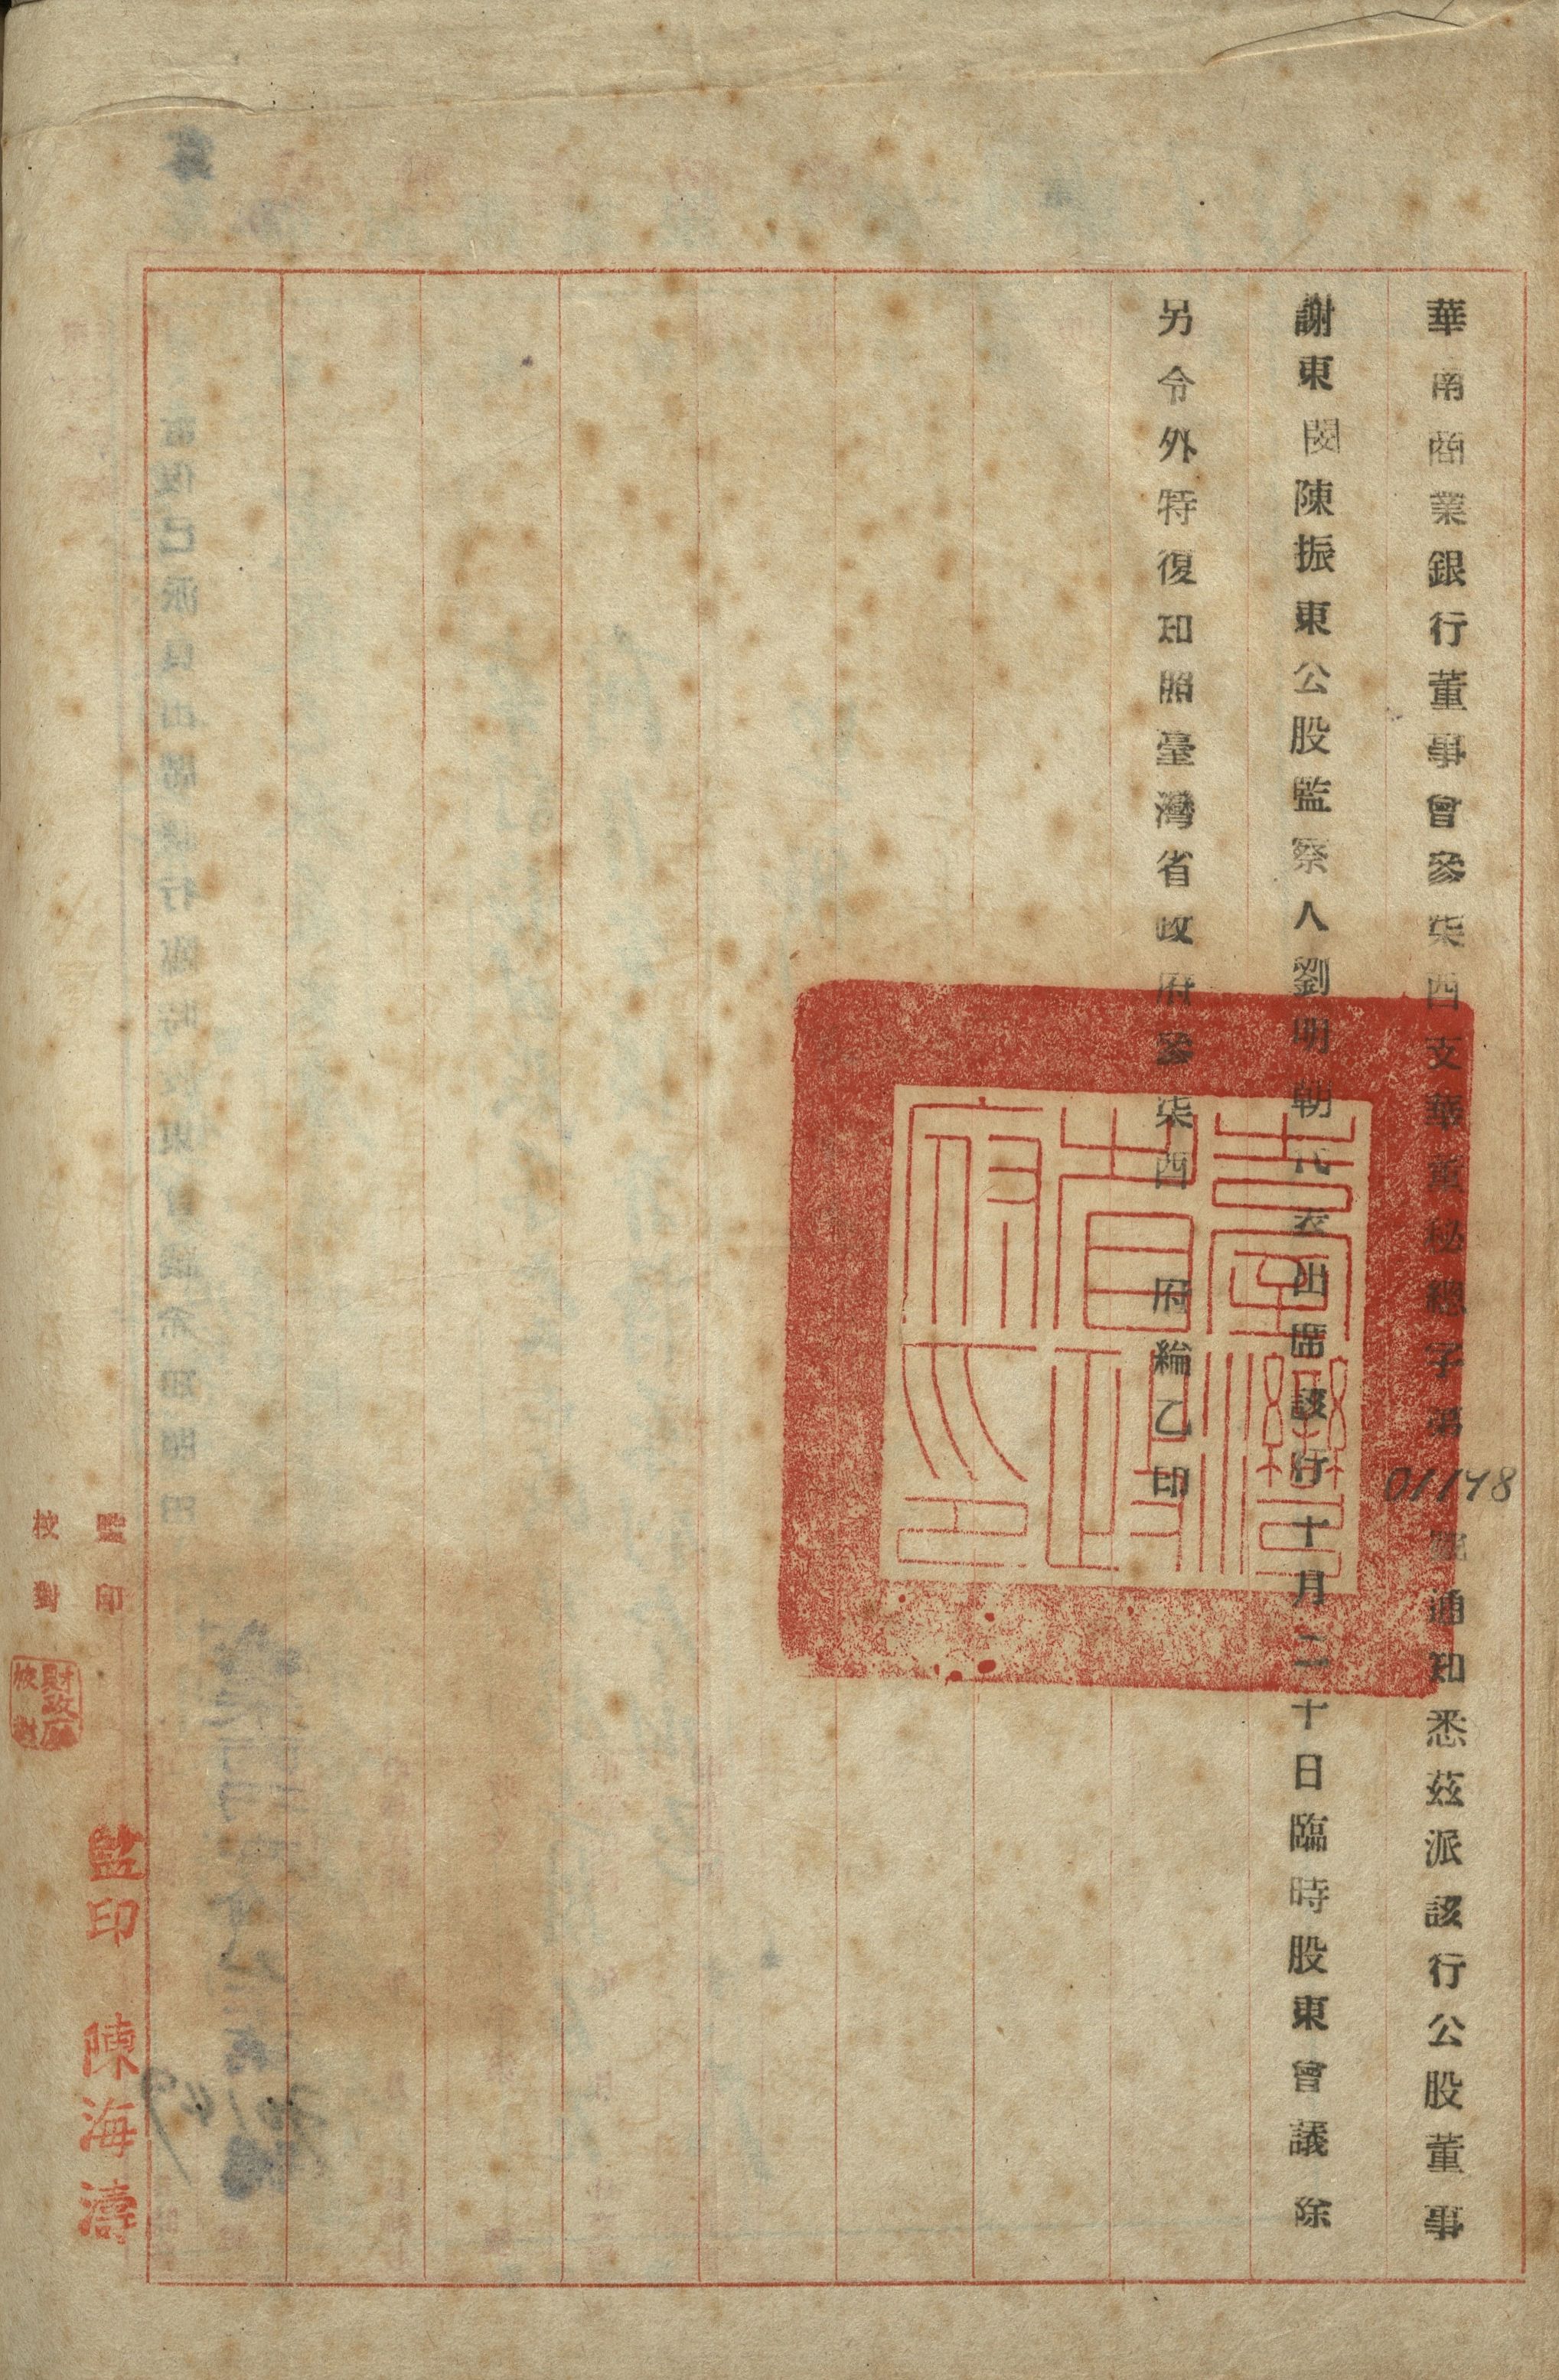 華南商業銀行董事會參柒酉支華董秘總字第01148號通知悉茲派該行公股董事
謝東閔陳振東公股監察人劉明朝代表出席該行十月二十日臨時股東會議除
另令外特復知照臺灣省政府參柒酉 府綸乙印
臺灣省政府之印
監印
校對
財政廳校對
監印 陳海濤